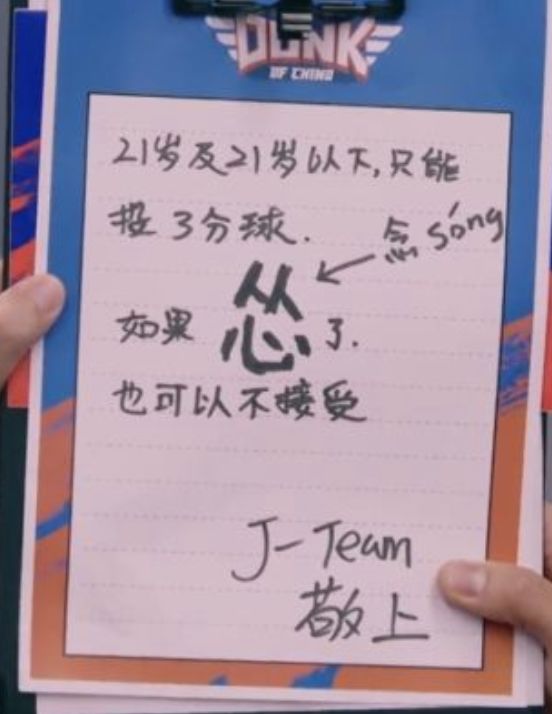 DUNK
OF CHINA
21岁及21岁以下,只能
投3分球.
念 sóng
如果 怂 了.
也可以不接受
J-Team
敬上